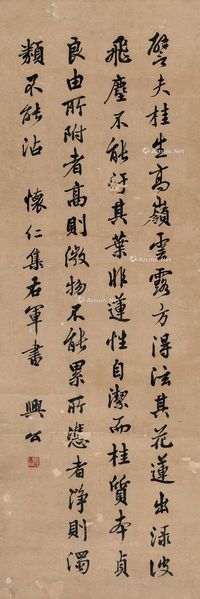 譬夫桂生高嶺雲露方得泫其花蓮出淥波
飛塵不能汙其葉非蓮性自潔而桂質本貞
良由所附者高則微物不能累所憑者淨則濁
類不能沾 懷仁集右軍書 興公